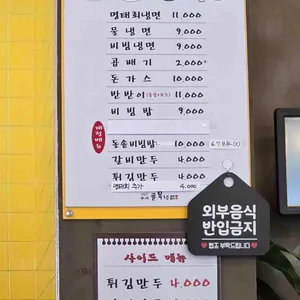 명태회냉면 11,000
물냉면 9,000
비빔냉면 9,000
곱배기 2,000
돈가스 10,000
반반이 11,000
비빔밥 9,000
계절메뉴
돌솥비빔밥 10,000
갈비만두 4,000
튀김만두 4,000
명태회 추가 4,000
외부음식
반입금지
협조 부탁드립니다
사이드 메뉴
튀김만두 4,000